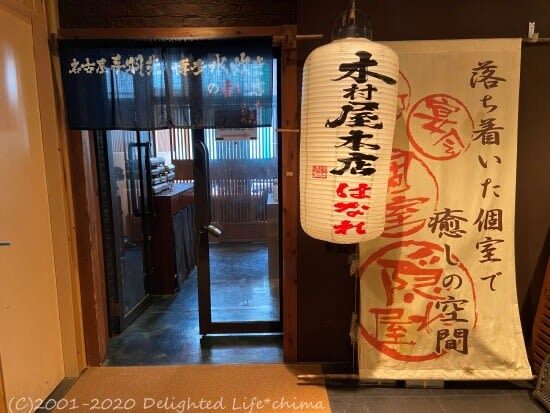 名古屋手羽先
博多水炊き
の
木村屋本店
はなれ
落ち着いた個室で
癒しの空間
宴会
個室
隠
屋
(C)2001-2020 Delighted Life*chima